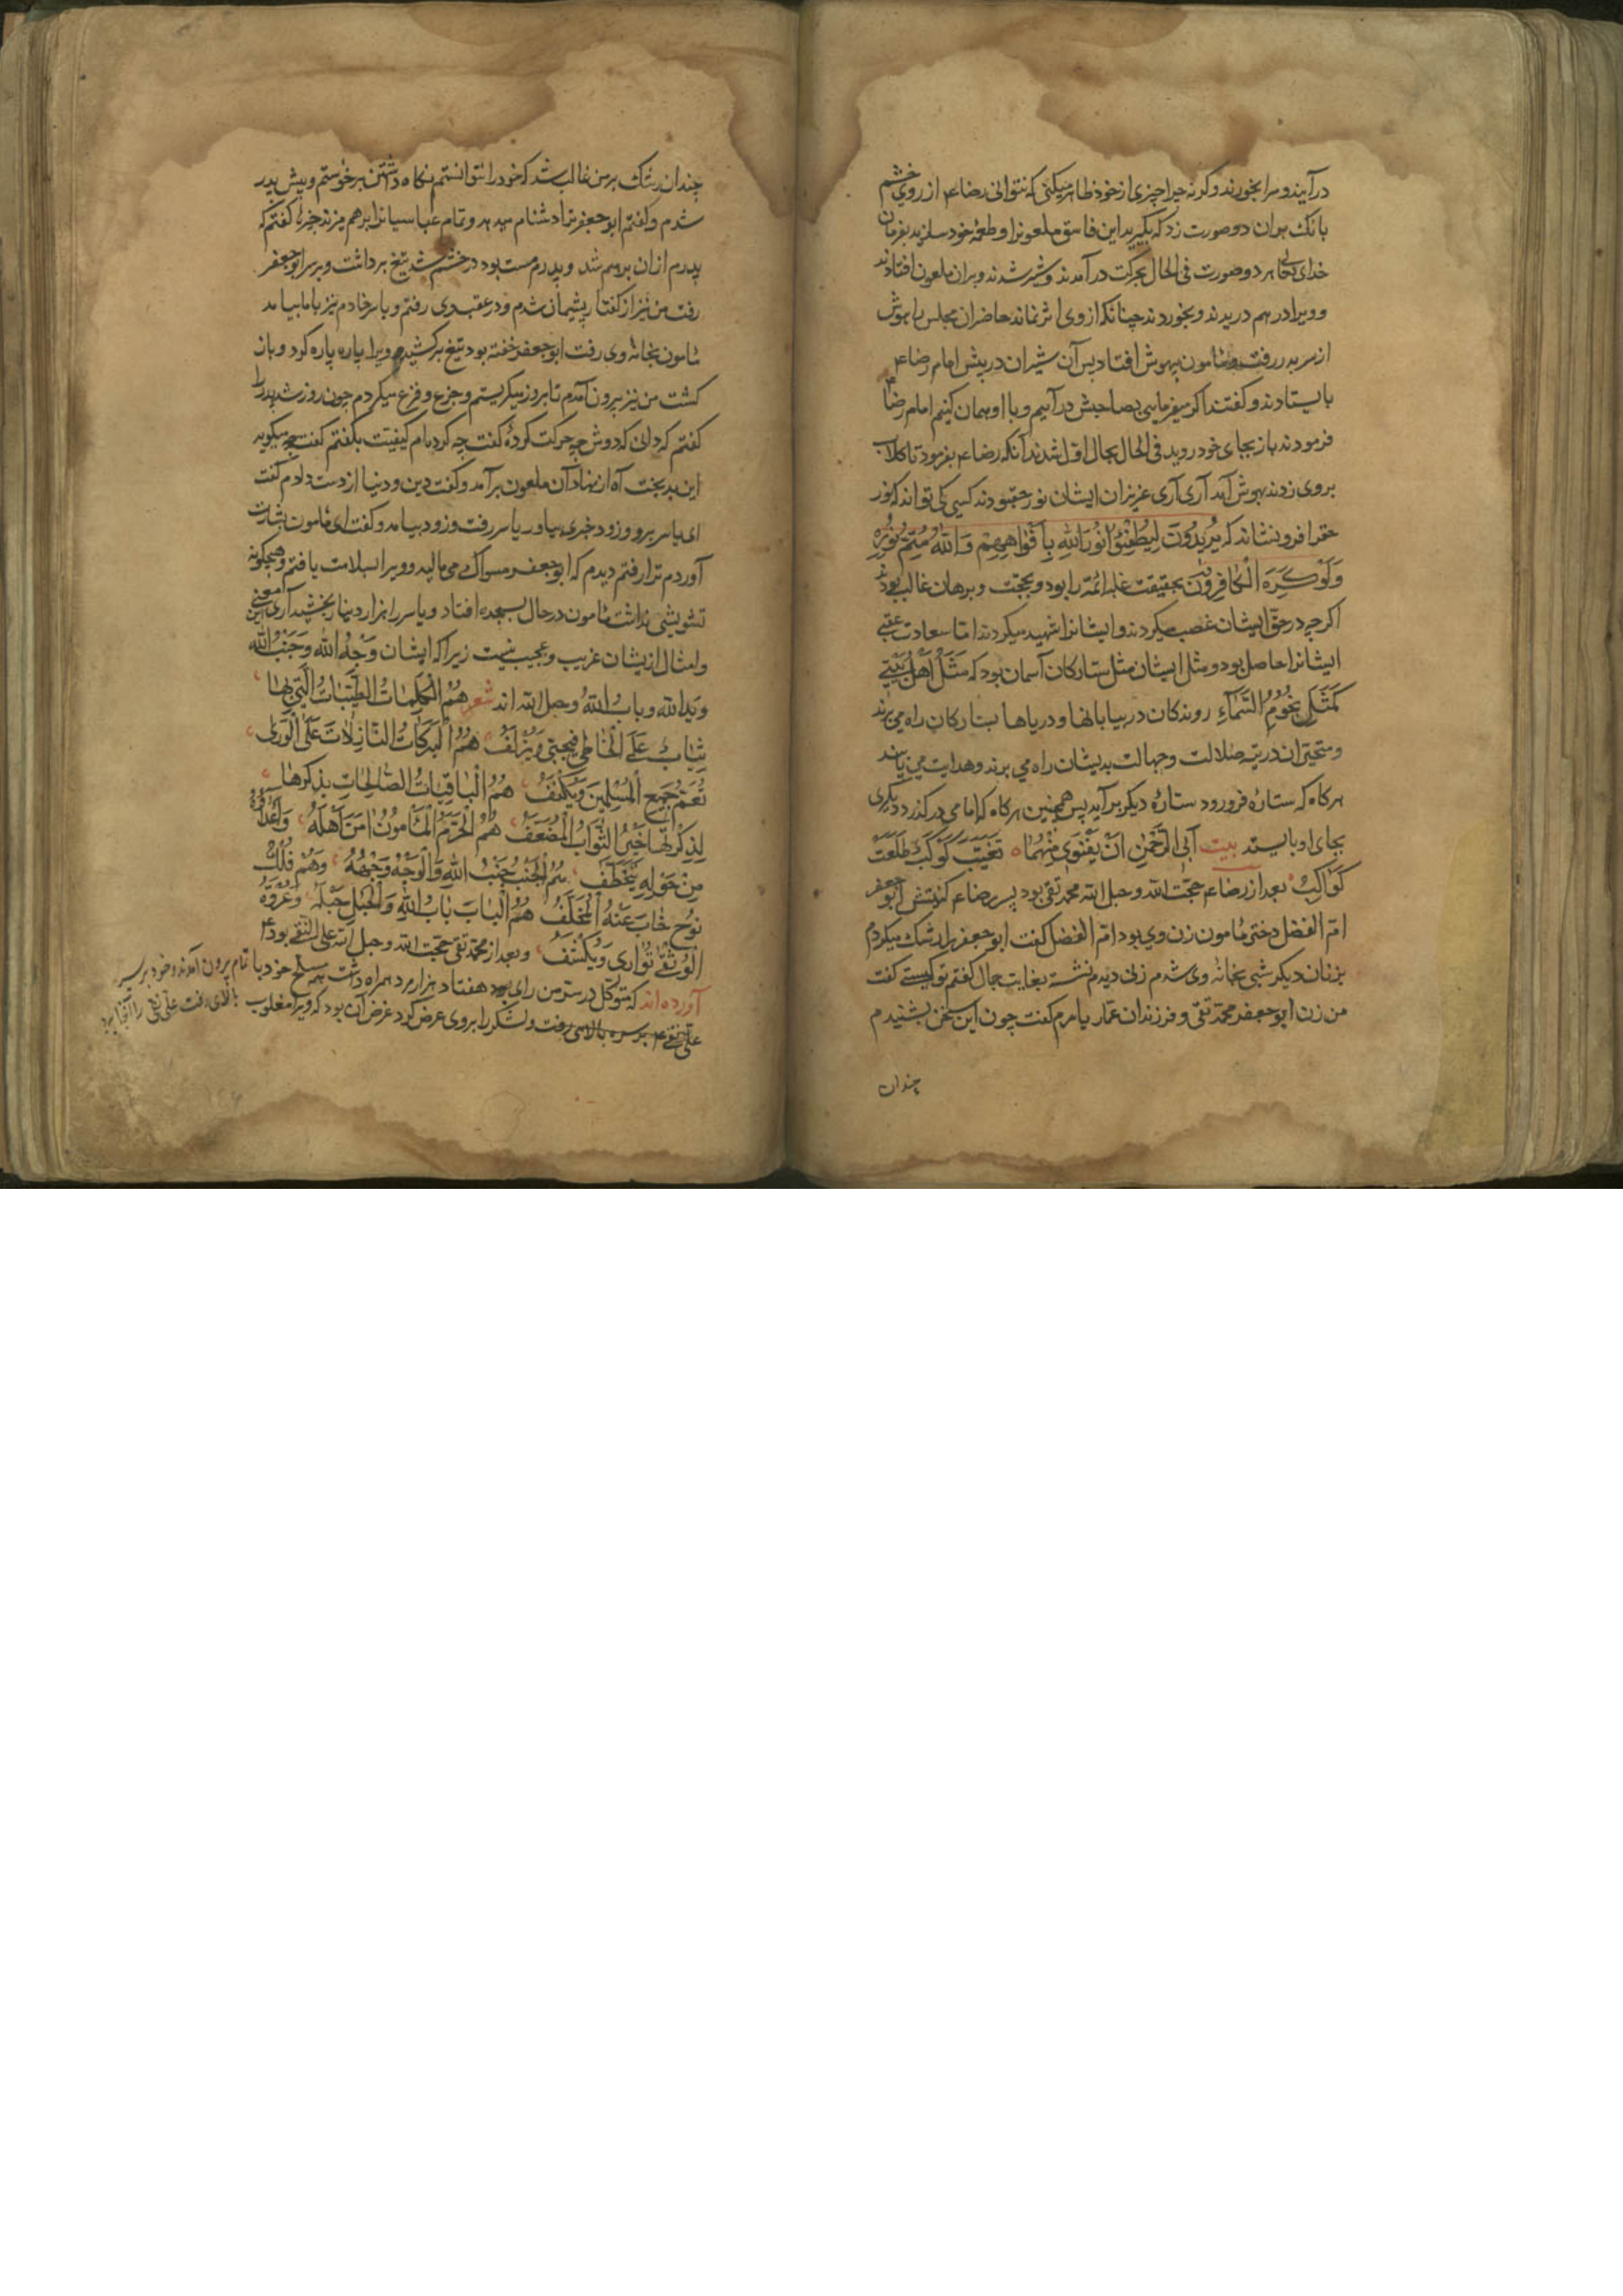 درآیند و مرا بخورند وکرنه چرا چیزی از خود ظاهر میکنی که نتوانی رضا ع از روی خشم
بانک بران دو صورت زد که بگیرید این فاسق ملعونرا و طعمهٔ خود سازید بفرمان
خدای تعالی هر دو صورت فی الحال بحرکت درآمدند و شیر شدند و بران ملعون افتادند
و ویرا در هم دریدند و بخوردند چنانکه از وی اثر نماند حاضران مجلس را هوش
از سر بدر رفت و مامون بیهوش افتاد پس آن شیران در پیش امام رضا ع
بایستادند و گفتند اگر میفرمایی بصاحبش درآییم و با او همان کنیم امام رضا ع
فرمودند باز بجای خود روید فی الحال بحال اوّل شدند آنکه رضا ع بفرمود تا کلاب
بر وی زدند بهوش آمد آری آری عزیزان ایشان نور حق بودند کسی کی تواند که نور
حقرا فرونشاند که یُرِیدُونَ لِیُطْفِئُوا نُورَ اللهِ بِأَفْوَاهِهِمْ وَاللهُ مُتِمُّ نُورِهِ
وَلَوْ کَرِهَ الْکَافِرُونَ بحقیقت غلبه ائمّه را بود و بحجّت و برهان غالب بودند
اکرچه در حق ایشان غصب میکردند و ایشانرا شهید میکردند امّا سعادت عقبی
ایشانرا حاصل بود و مثل ایشان مثل ستارکان آسمان بود که مَثَلُ اَهْلِ بَیْتِی
کَمَثَلِ نُجُومِ السَّمَاءِ روندکان در بیابانها و دریاها بستارکان راه می برند
و متحیّران در تیه ضلالت و جهالت بدیشان راه می برند و هدایت می یابند
هرکاه که ستارهٔ فرورود ستارهٔ دیکر برآید پس همچنین هرکاه که امامی درکذرد دیکری
بجای او بایستد بیت اَبَی الرَّحْمٰنِ اَنْ یَفْنَوی مِنْهُمَا تَغَیَّبَ کَوْکَبٌ طَلَعَتْ
کَوَاکِبُ بعد از رضا ع حجّت الله و حبل الله محمّد تقی بود پسر رضا ع کنیتش ابو جعفر
امّ الفضل دختر مامون زن وی بود امّ الفضل کفت ابو جعفر را رشک میکردم
بزنان دیکر شبی بخانه وی شدم زنی دیدم نشسته بغایت جمال کفتم تو کیستی کفت
من زن ابو جعفر محمّد تقی و فرزندان عمّار یاسرم کفت چون این سخن بشنیدم
چندان
چندان رشک بر من غالب شد که خود را نتوانستم نکاه داشتن برخواستم و پیش پدر
شدم و کفتم ابو جعفر ترا دشنام میدهد و تمام عباسیانرا برهم میزند کفتم که
پدرم ازان برهم شد و پدرم مست بود در خشم شد تیغ برداشت و بر سر ابو جعفر
رفت من نیز از کفتار پشیمان شدم و در عقب وی رفتم و یاسر خادم نیز با ما بیامد
مامون بخانه وی رفت ابو جعفر خفته بود تیغ برکشید و ویرا پاره پاره کرد و باز
کشت من نیز بیرون آمدم تا بروز میکریستم و جزع و فزع میکردم چون روز شد پدر را
کفتم که دانی که دوش چه حرکت کردهٔ کفت چه کرده ام کیفیّت بکفتم کفت چه میکویی
این بدبخت آه از نهاد آن ملعون برآمد و کفت دین و دنیا از دست دادم کفت
ای یاسر برو و زود خبری بیاور یاسر رفت و زود بیامد و کفت ای مامون بشارت
آوردم ترا رفتم دیدم که ابو جعفر مسواک می مالید و ویرا بسلامت یافتم و هیچکونه
تشویشی نداشت مامون در حال بسجده افتاد و یاسر را هزار دینار بخشید آری این معنی
و امثال از یشان غریب و عجیب نیست زیرا که ایشان وَجْهُ الله وَ جَنْبُ الله
وَ یَدُ الله و بابُ اللهُ و حبل الله اند شعر هُمُ الْکَلِمَاتُ الطَّیِّبَاتُ الَّتِی بِهَا
یُتَابُ عَلَی الْخَاطِی فَیُحْبٰی وَ یُزْلَفُ هُمُ الْبَرَکَاتُ النَّازِلَاتُ عَلَی الْوَرٰی
تَعُمُّ جَمِیعَ الْمُسْلِمِینَ وَ یَکْنِفُ هُمُ الْبَاقِیَاتُ الصَّالِحَاتِ بِذِکْرِهَا
لِذِکْرِیهَا خَیْرُ الثَّوَابُ الْمُضَعَّفُ هُمُ الْحَرَمُ الْمَأْمُونُ اٰمَنَ اَهْلَهُ وَ اَعْدَاؤُهُ
مِنْ حَوْلِهِ یُتَخَطَّفُ هُمُ الْجَنْبُ جَنْبُ اللهِ وَ الْوَجْهُ وَجْهُهُ وَهُمْ فُلْکُ
نُوحٍ خَابَ عَنْهُ الْمُخَلَّفُ هُمُ الْبَابُ بَابُ اللهِ وَ الْحَبْلُ حَبْلُهُ وَ عُرْوَةُ
الْوُثْقٰی تُوَارِی وَ یُکْشَفُ و بعد از محمّد تقی حجّت الله و حبل الله علی النّقی بود ع
آورده اند که متوکّل در سرّ من رای بود هفتاد هزار مرد همراه داشت همه بسلح خود با تمام بیرون آمدند و خود بر سر
علی نقی ع بر سره بالای رفت و لشکر را بر وی عرض کرد غرض آن بود که ویرا مغلوب بالای رفت علی نقی را آنجا برد